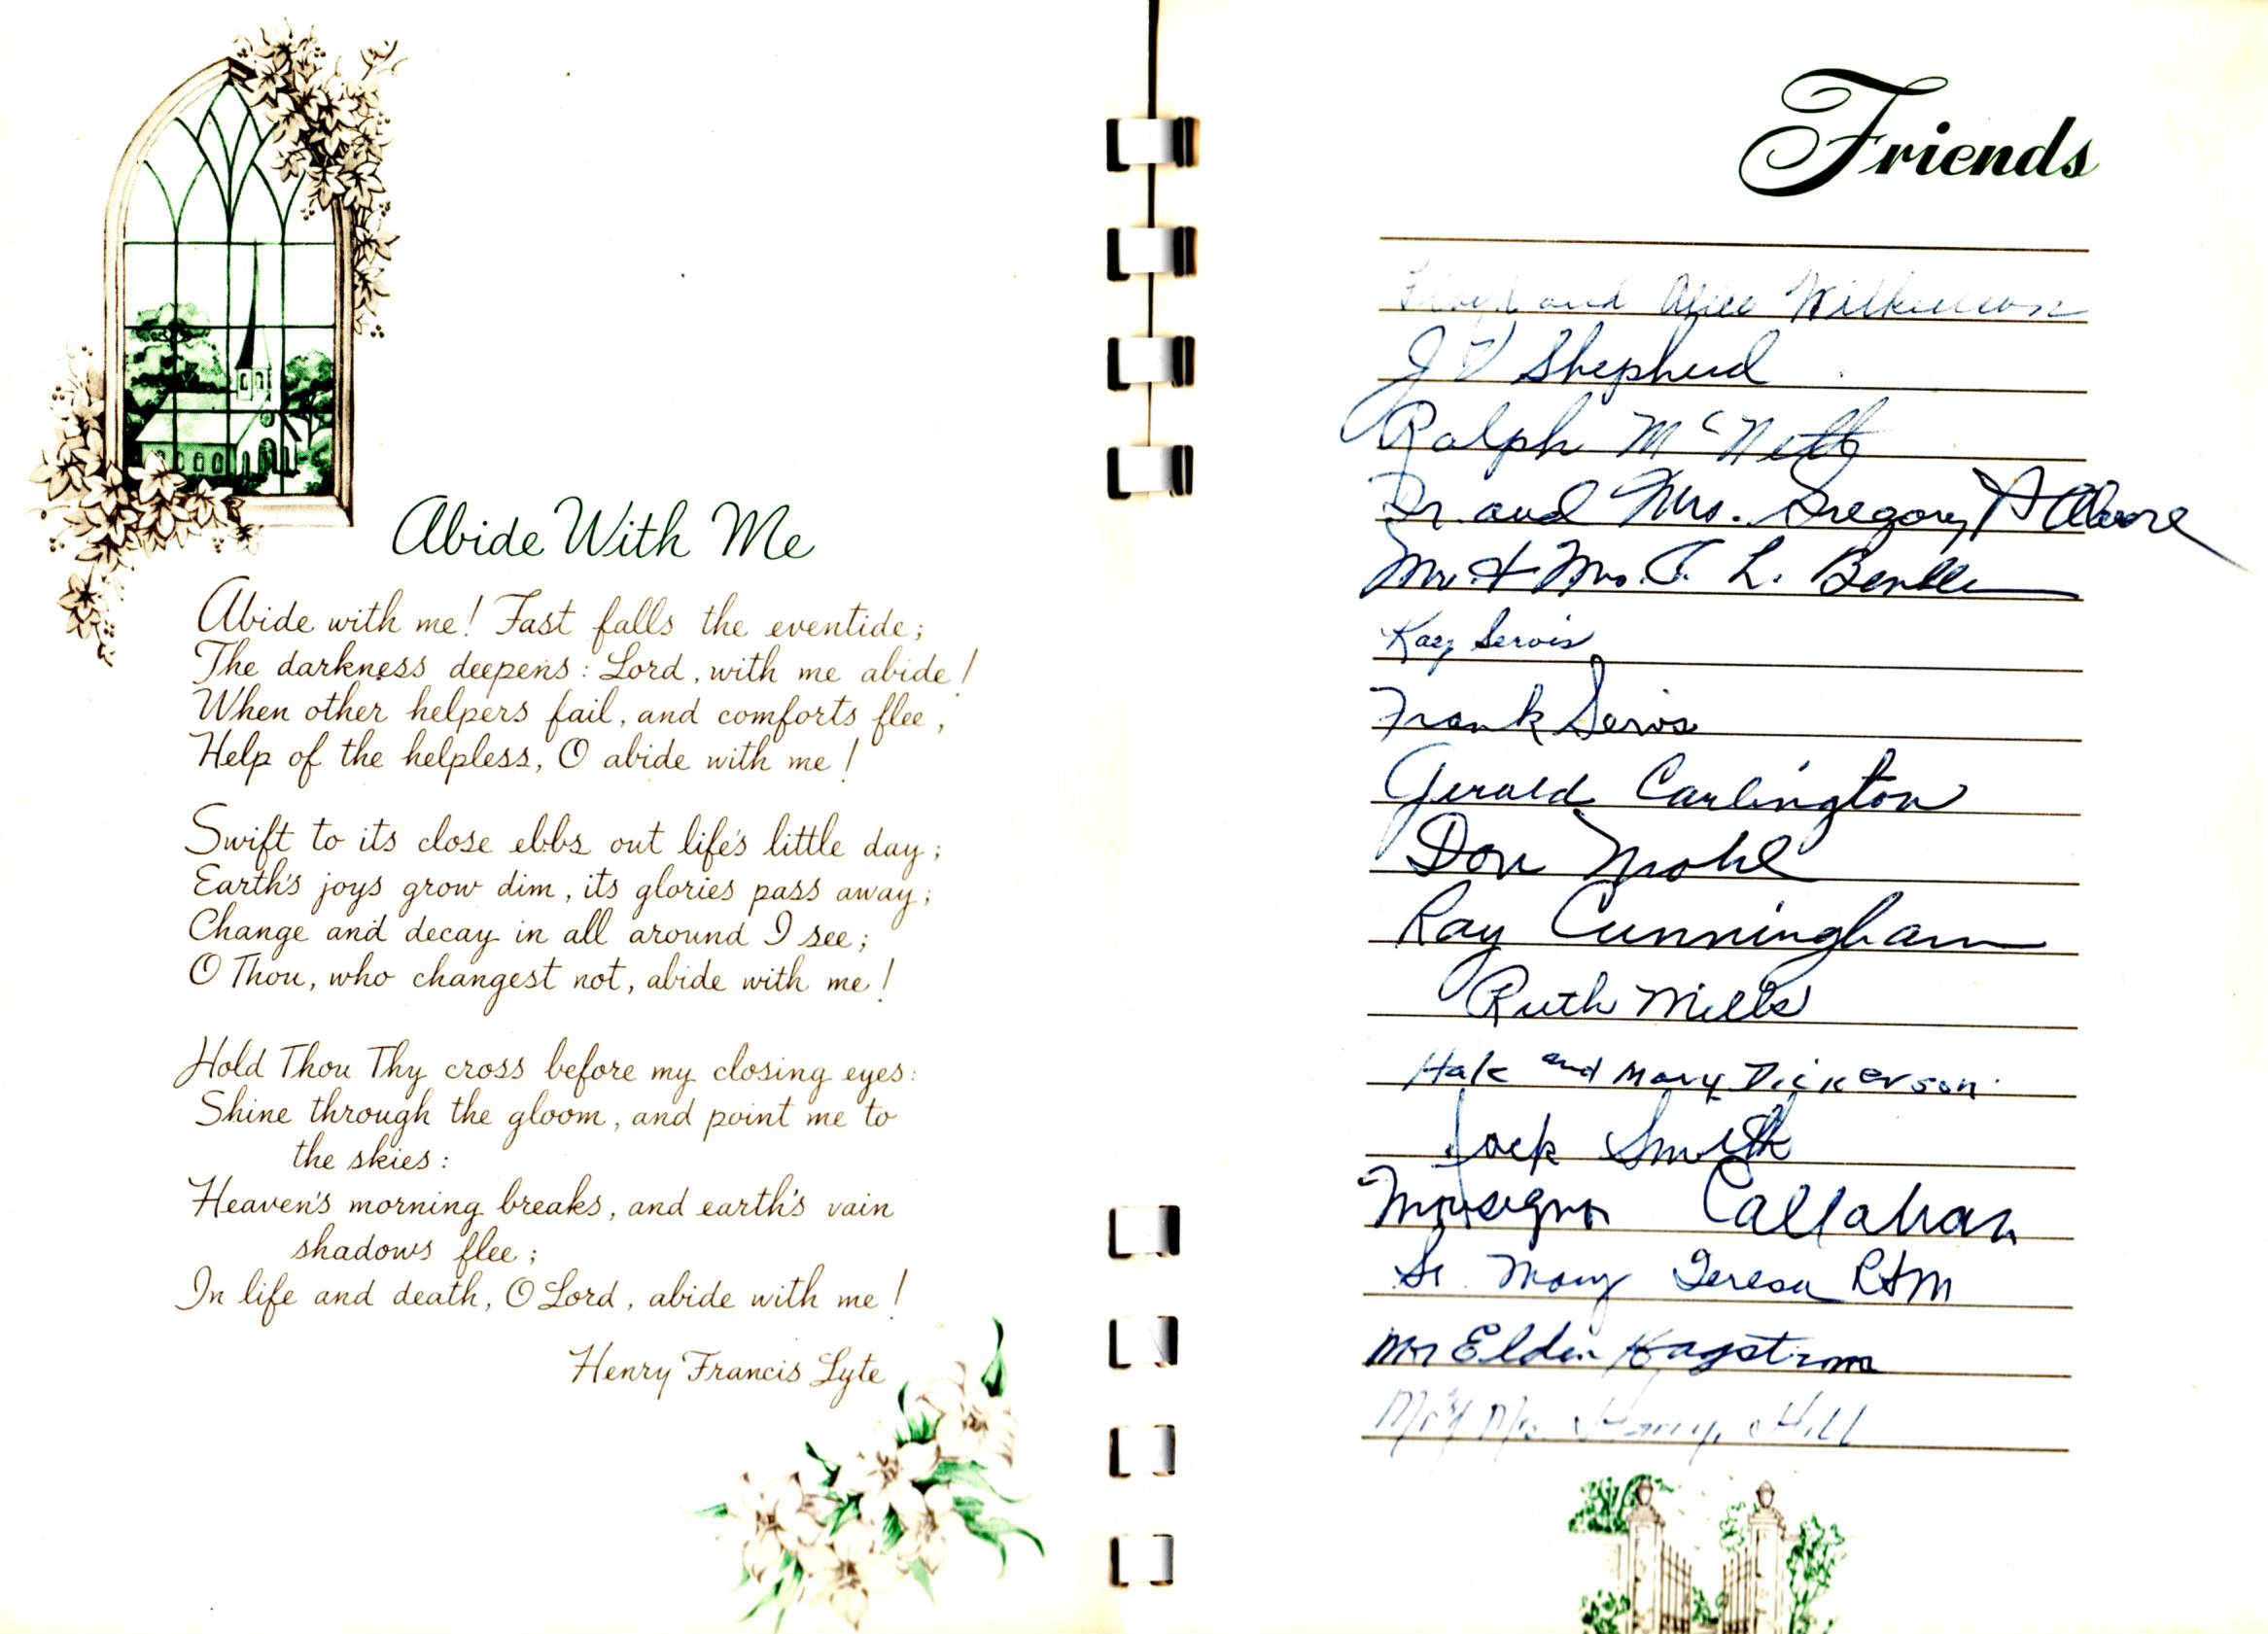 Abide With Me
Abide with me! Fast falls the eventide;
The darkness deepens: Lord, with me abide!
When other helpers fail, and comforts flee,
Help of the helpless, O abide with me!
Swift to its close ebbs out life's little day;
Earth's joys grow dim, its glories pass away;
Change and decay in all around I see;
O Thou, who changest not, abide with me!
Hold Thou Thy cross before my closing eyes:
Shine through the gloom, and point me to
the skies:
Heaven's morning breaks, and earth's vain
shadows flee;
In life and death, O Lord, abide with me!
Henry Francis Lyte
Friends
and Alice Wilkinson
J V Shepherd
Ralph McNett
Dr. and Mrs. Gregory A Moore
Mr. + Mrs. L.
Kay Servis
Frank Servis
Gerald Carlington
Don Mohl
Ray Cunningham
Ruth Mills
Hale and Mary Dickerson
Jack Smith
Callahan
Sr. Mary Teresa RSM
Mr Elden Hagstrom
Mr & Mrs. Harry Hill